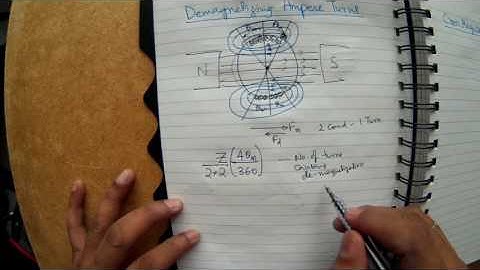 Demagnetizing Ampere Turns
N
S
Fm
Fd
2 Cond - 1 Turn
Z/2×2 (4θm/360)
No. of turns
Causing
de-magnetization